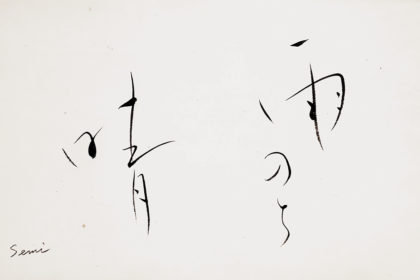 雨のち
晴
Semi